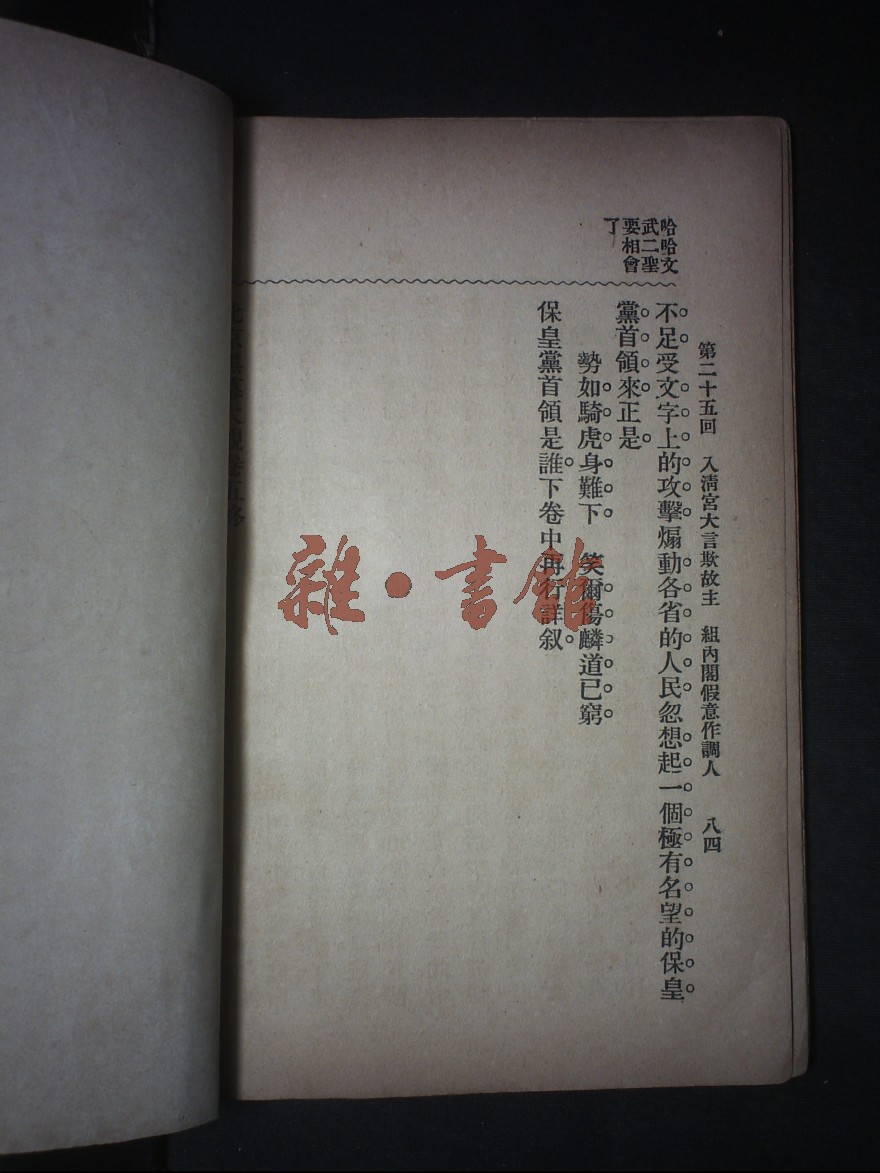 第二十五回　入淸宮大言欺故主　組內閣假意作調人　八四
哈哈文
武二聖
要相會
了
不足受文字上的攻擊煽動各省的人民忽想起一個極有名望的保皇
黨首領來正是
勢如騎虎身難下　笑爾傷麟道已窮
保皇黨首領是誰下卷中再行詳叙
雜·書館